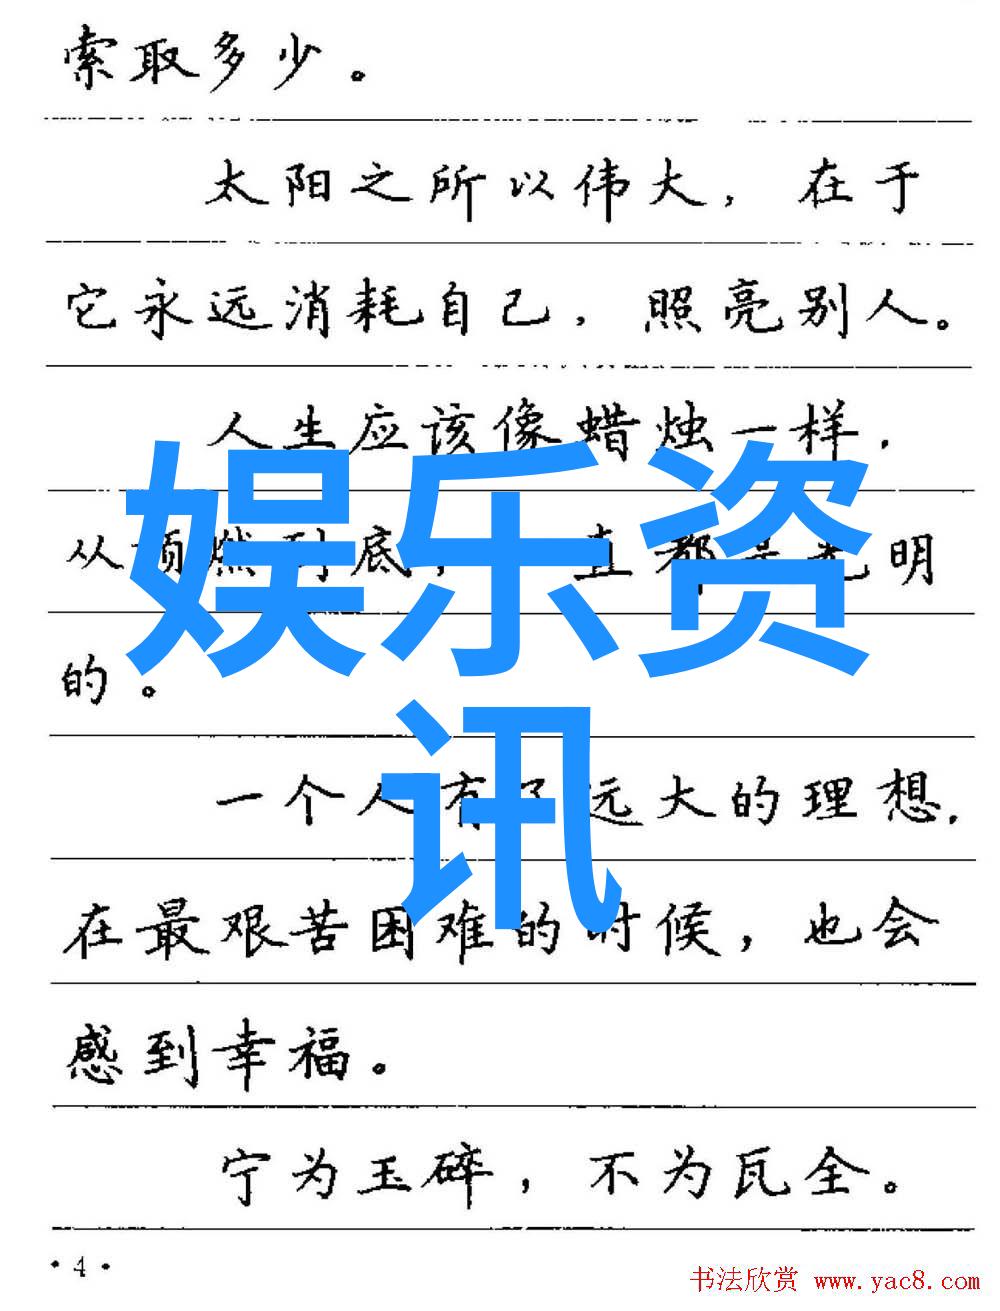 索取多少。
太阳之所以伟大，在于
它永远消耗自己，照亮别人。
人生应该像蜡烛一样，
从顶燃到底，一直都是光明
的。
一个人有了远大的理想，
在最艰苦困难的时候，也会
感到幸福。
宁为玉碎，不为瓦全。
娱乐资
讯
·4·
书法欣赏 www.yac8.com